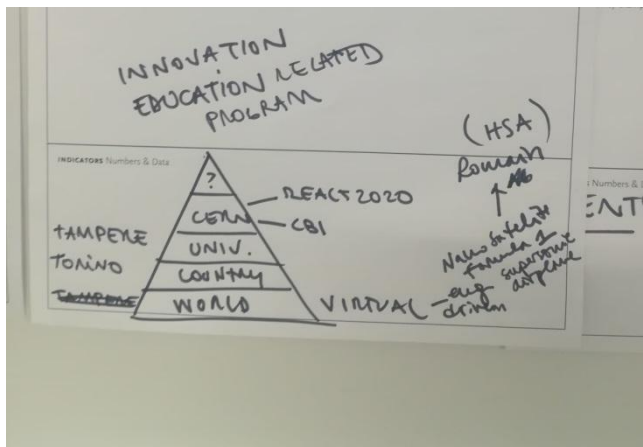 INNOVATION
EDUCATION RELATED
PROGRAM
(HSA)
Romain
INDICATORS Numbers & Data
?
CERN
UNIV.
COUNTRY
WORLD
REACT2020
CBI
TAMPERE
TORINO
TAMPERE
VIRTUAL
Nanosatelite
Formula 1
supersonic
airplane
driven
s Numbers & D
ENT